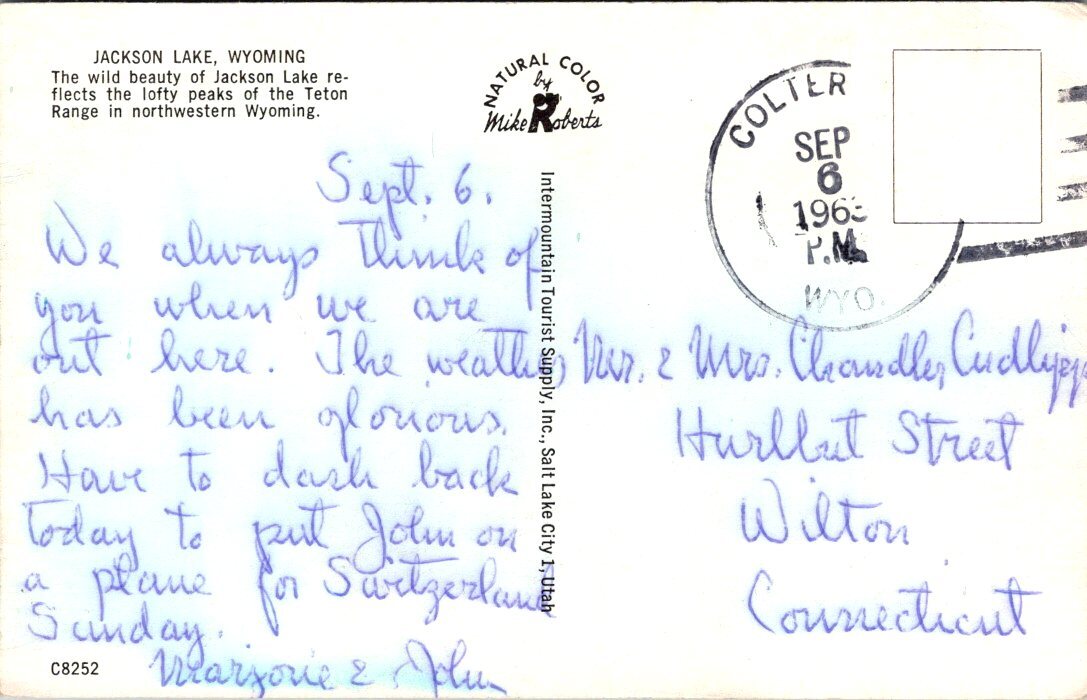 JACKSON LAKE, WYOMING
The wild beauty of Jackson Lake re-
flects the lofty peaks of the Teton
Range in northwestern Wyoming.
NATURAL COLOR
by
Mike Roberts
COLTER
SEP
6
196
P.M.
WYO.
Sept. 6.
We always think of
you when we are
out here. The weather
has been glorious.
Have to dash back
today to put John on
a plane for Switzerland
Sunday.
Marjorie & John
Intermountain Tourist Supply, Inc., Salt Lake City 1, Utah
Mr. & Mrs. Chandler Cudlipp
Hurlbut Street
Wilton
Connecticut
C8252